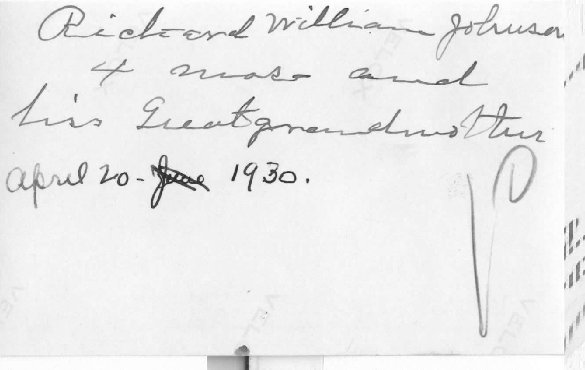 Richard William Johnson
4 mos. and
his Greatgrandmother
April 20 - June 1930.
P
VELOX
VELOX
VELOX